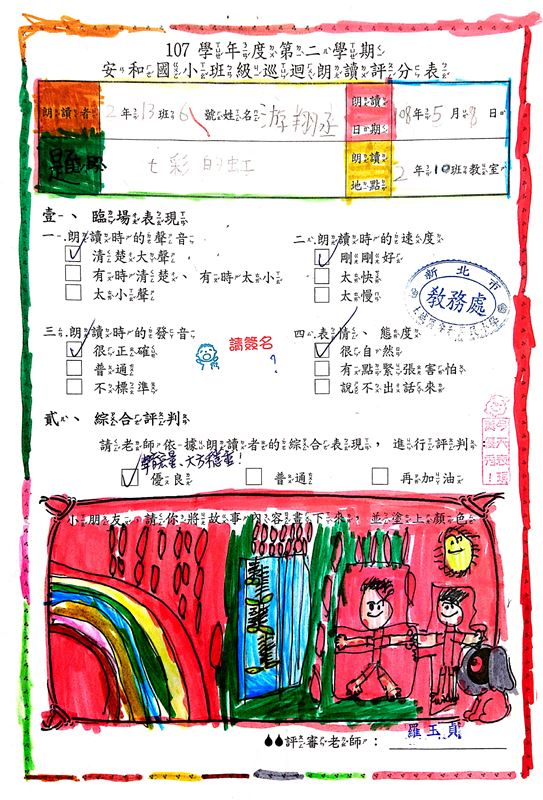 107 學年度第二學期
安和國小班級巡迴朗讀評分表
朗讀者 2 年 13 班 6 號 姓名 游翔丞 朗讀日期 108 年 5 月 8 日
題 七彩的虹 朗讀地點 2 年 10 班教室
壹、臨場表現
一、朗讀時的聲音 二、朗讀時的速度
清楚大聲 剛剛好
有時清楚、有時太小 太快
太小聲 太慢
新北市
教務處
三、朗讀時的發音 請簽名 四、表情、態度
很正確 很自然
普通 有點緊張害怕
不標準 說不出話來
貳、綜合評判
請老師依據朗讀者的綜合表現,進行評判:
大方穩重!
優良 普通 再加油
小朋友,請你將故事內容畫下來,並塗上顏色
評審老師: 羅玉貞